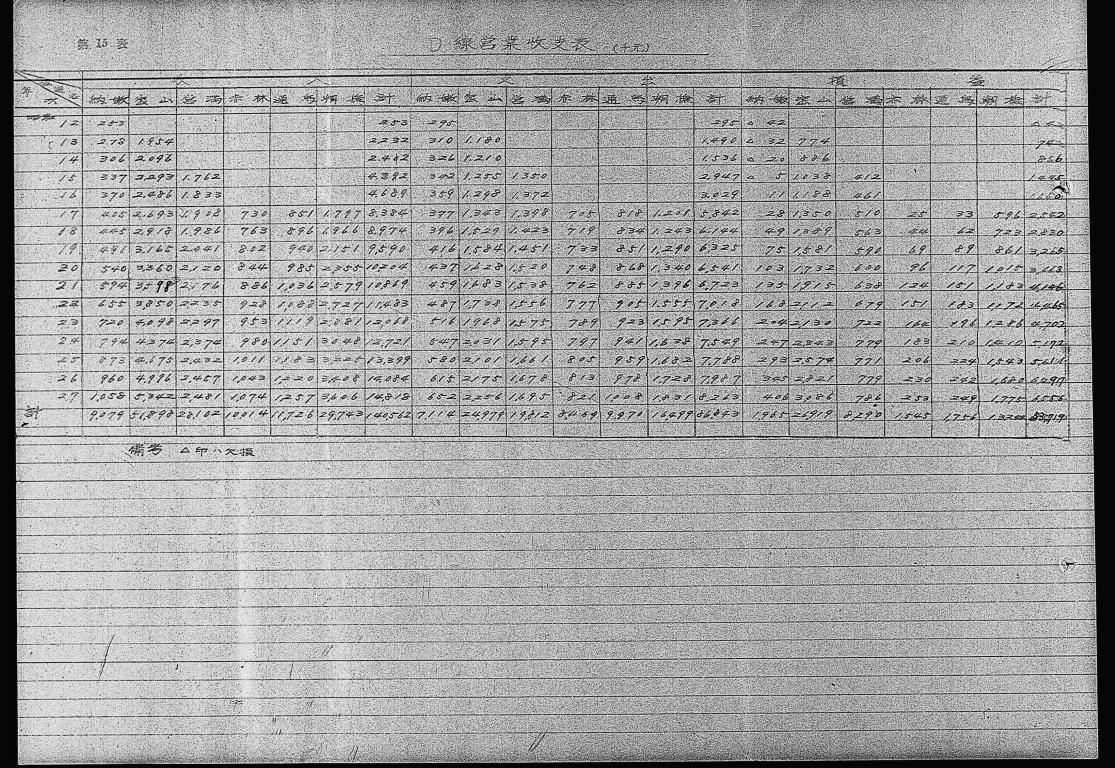 第 15 表
D 線営業収支表 (千元)
収 入 支 出 損 益
年 次
計 計 計
昭和12 253 253 295 295 △ 42
13 278 1,954 2,232 310 1,180 1,490 △ 32 774
14 306 2,096 326 1,210 1,536 △ 20 886 866
15 337 1,762 1,255 1,350 2,947 △ 5 1,038 412
16 370 2,486 1,833 4,689 359 1,298 1,372 3,029 11 1,188 461
17 405 2,693 1,908 730 851 1,797 8,384 377 1,343 1,398 705 818 1,201 5,842 28 1,350 510 25 33 596 2,542
18 445 2,918 1,986 763 896 1,966 8,974 396 1,529 1,423 719 834 1,243 6,144 49 1,389 563 44 62 723 2,830
19 491 3,165 2,041 802 940 2,151 9,590 416 1,584 1,451 733 851 1,290 6,325 75 1,581 590 69 89 861 3,265
20 540 3,360 2,120 844 985 2,355 10,204 437 1,628 1,520 748 868 1,340 6,541 103 1,732 600 96 117 1,015 3,663
21 594 3,598 2,176 886 1,036 2,579 10,869 459 1,683 1,538 762 885 1,396 6,723 135 1,915 638 124 151 1,183 4,146
22 655 3,850 2,235 928 1,088 2,727 11,483 487 1,738 1,556 777 905 1,555 7,018 168 2,112 679 151 183 1,172 4,465
23 720 4,098 2,297 953 1,119 2,881 12,068 516 1,968 1,575 789 923 1,595 7,366 204 2,130 722 164 196 1,286 4,702
24 794 4,374 2,374 980 1,151 3,048 12,721 547 2,031 1,595 797 941 1,638 7,549 247 2,343 779 183 210 1,410 5,172
25 873 4,675 2,432 1,011 1,183 3,225 13,399 580 2,101 1,661 805 959 1,682 7,788 293 2,574 771 206 224 1,543
26 960 4,996 2,457 1,043 1,220 3,408 14,084 615 2,175 1,678 813 978 1,728 7,987 345 2,821 779 230 242 1,680 6,097
27 1,058 5,342 2,481 1,074 1,257 3,606 14,818 652 2,256 1,695 821 1,008 1,831 8,263 406 3,086 786 253 249 1,775 6,555
計 9,079 51,898 28,102 10,014 11,726 29,743 140,562 7,114 24,979 19,812 8,469 9,970 16,499 86,843 1,965 26,919 8,290 1,545 1,756 53,719
備考 △印ハ欠損